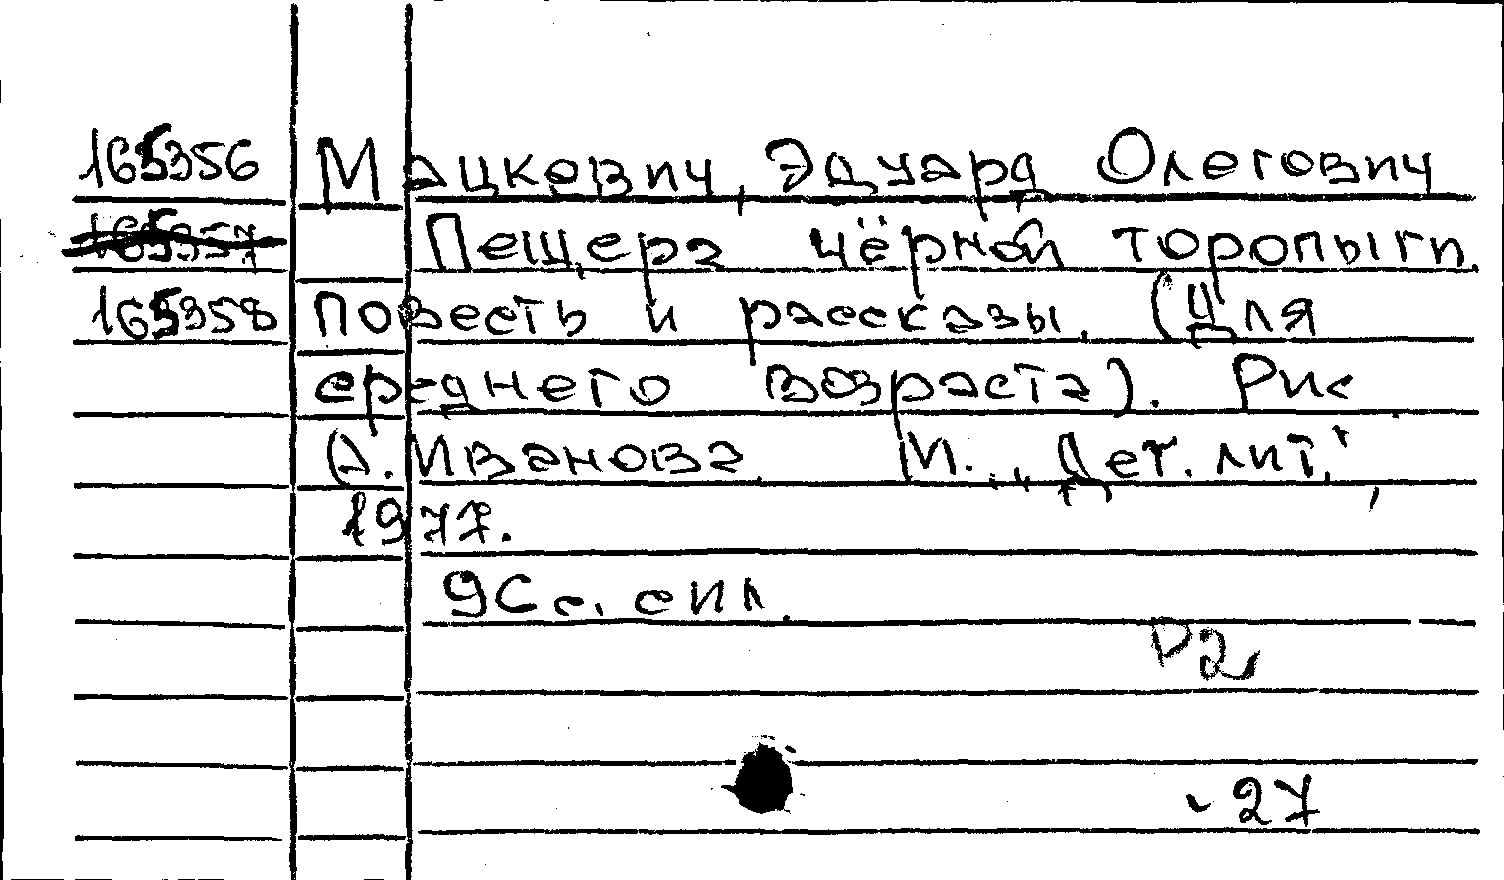 165356 Мацкевич, Эдуард Олегович
165357 Пещера чёрной торопыги.
165358 Повесть и рассказы. (Для
среднего возраста). Рис.
А. Иванова. М., "Дет. лит.",
1977.
с ил.
P2
27